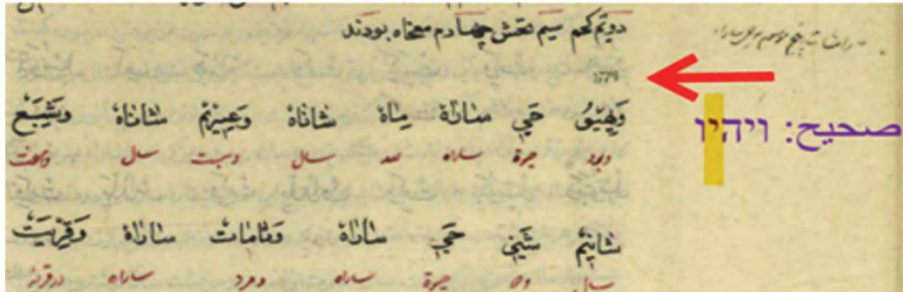 دویم کحم سیم تخش چهارم معخاه بودند
صحيح: ויהיו
حَيِّ ساراة مِاة شاناة وعِسرِيم شاناة وشِبَع
وبود حیوة ساره صد سال وبیست سال وهفت
شانِيم شِنِي حَيِّ ساراة وَتامات ساراة وَقِريَت
سال حیوة ساراه ومرد ساراه در قریه